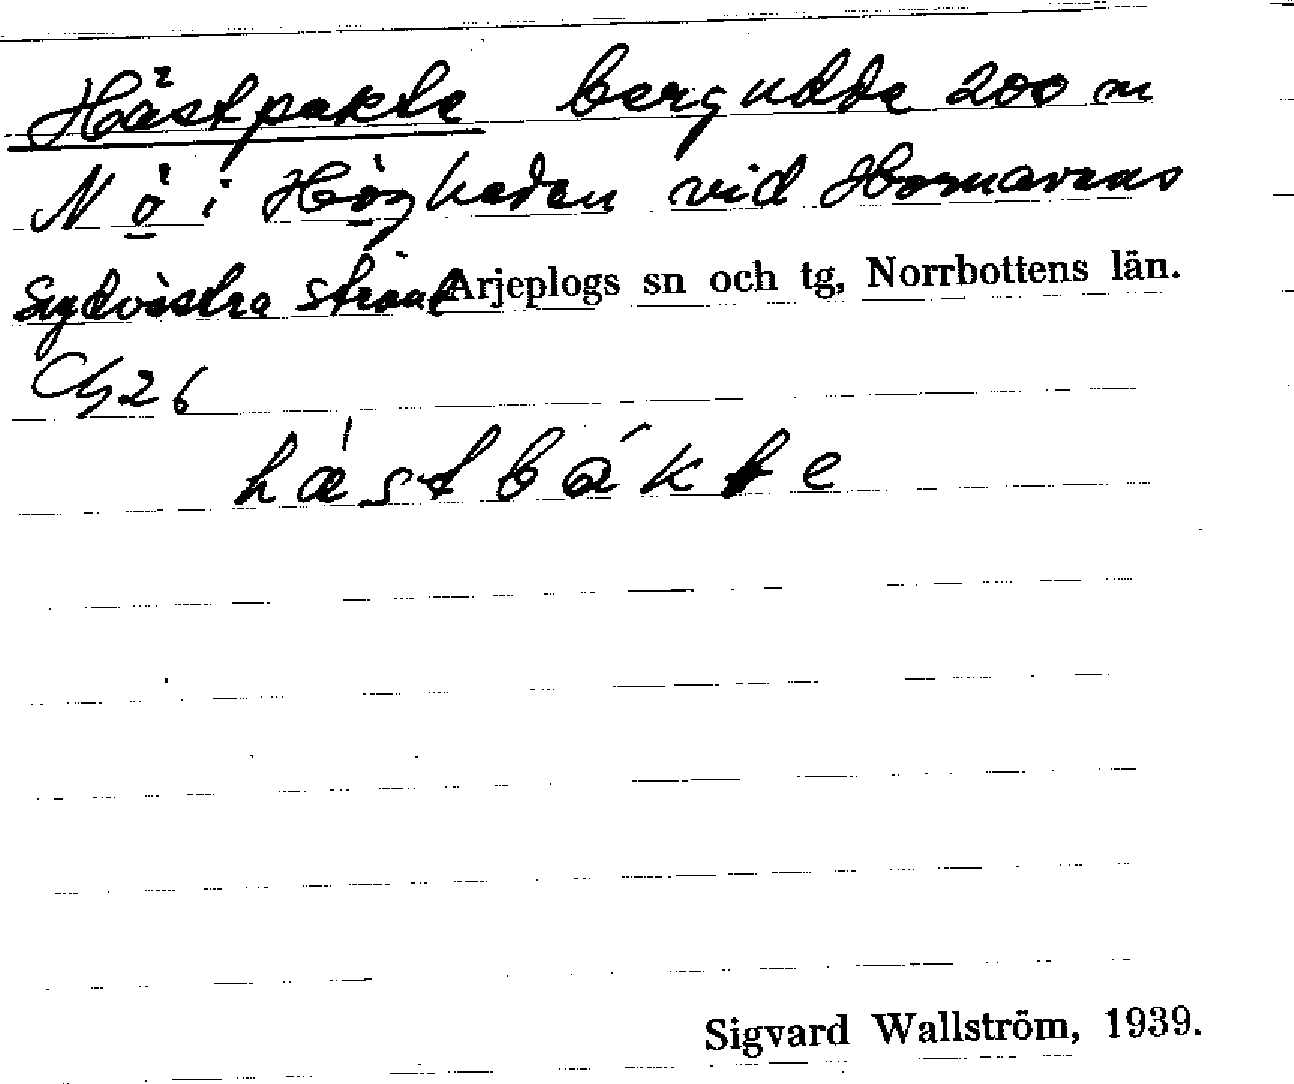 Hästpakte bergudde 200 m
N ö i Högheden vid Hornavans
Sydvästra strand Arjeplogs sn och tg, Norrbottens län.
26
hæstbákte
Sigvard Wallström, 1939.